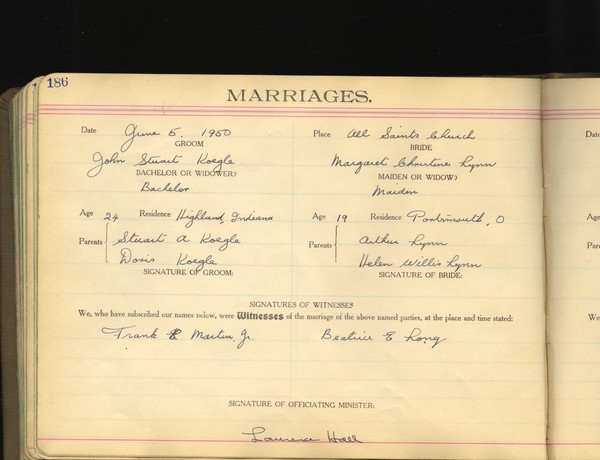 186
MARRIAGES.
Date June 5. 1950 Place All Saints Church
GROOM BRIDE
John Stuart Koegle Margaret Christine Lynn
BACHELOR OR WIDOWER? MAIDEN OR WIDOW?
Bachelor Maiden
Age 24 Residence Highland, Indiana Age 19 Residence Portsmouth, O
Parents Stuart A Koegle Parents Arthur Lynn
Doris Koegle Helen Willis Lynn
SIGNATURE OF GROOM: SIGNATURE OF BRIDE:
SIGNATURES OF WITNESSES
We, who have subscribed our names below, were Witnesses of the marriage of the above named parties, at the place and time stated:
Frank Martin, Jr. Beatrice E Long
SIGNATURE OF OFFICIATING MINISTER:
Laurence Hall
Date
Age
Parents
We